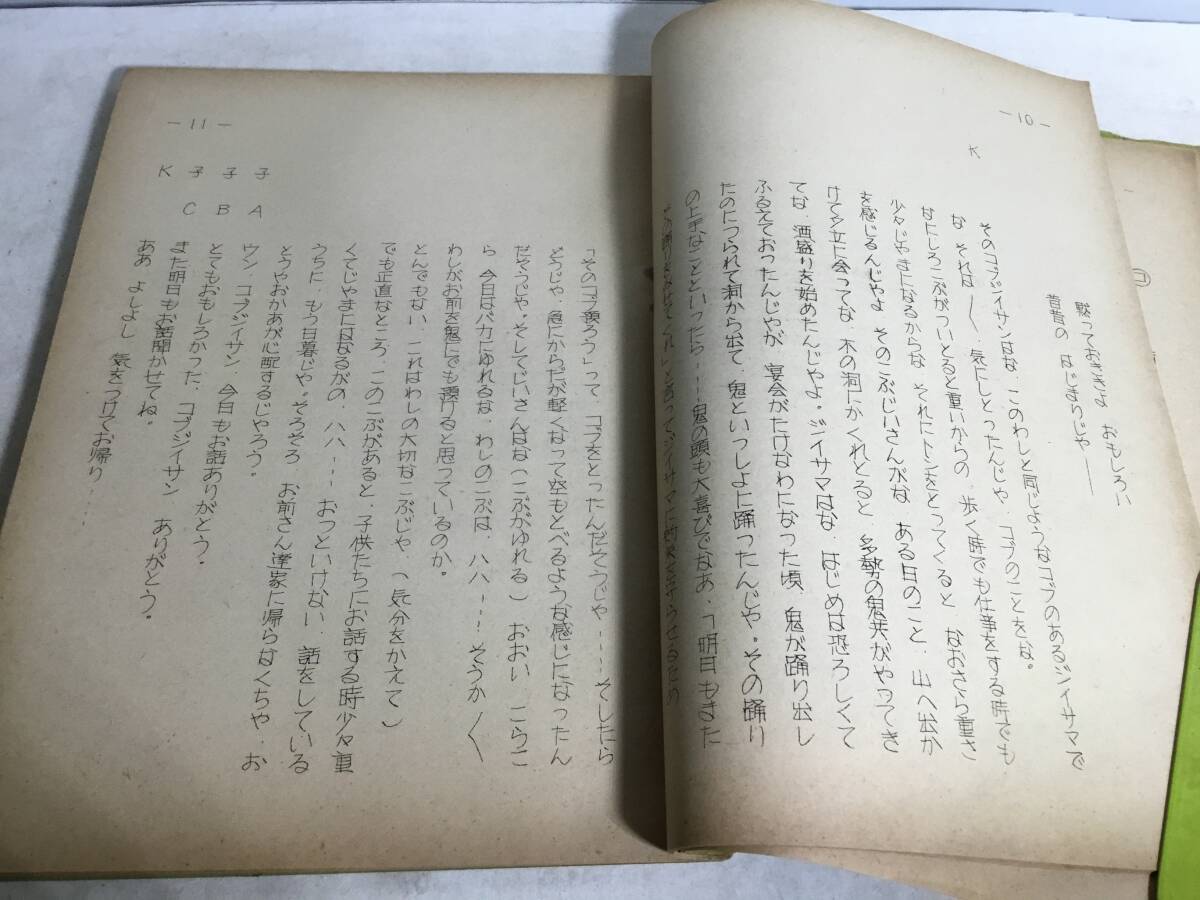 －10－
黙っておききよ おもしろい
昔昔の はじまりじゃ――
K
そのコブジイサンはな、このわしと同じようなコブのあるジイサマで
な それは〱 気にしとったんじゃ、コブのことをな。
なにしろこぶがついとると重いからの、歩く時でも仕事をする時でも
少々じゃまになるからな それにトシをとってくると なおさら重さ
を感じるんじゃよ そのこぶじいさんがな ある日のこと、山へ出か
けて夕立に会ってな、木の洞にかくれとると、多勢の鬼共がやってき
てな、酒盛りを始めたんじゃよ。ジイサマはな、はじめは恐ろしくて
ふるえておったんじゃが 宴会がたけなわになった頃、鬼が踊り出し
たのにつられて洞から出て、鬼といっしよに踊ったんじゃ。その踊り
の上手なことといったら……鬼の頭も大喜びでなあ、「明日もきた
－11－
「そのコブ貰ろう」って コブをとったんだそうじゃ……そしたら
どうじゃ、急にからだが軽くなって空もとべるような感じになったん
だそうじゃ。そしてじいさんはな（こぶがゆれる）おおい こらこ
ら 今日はバカにゆれるな、わしのこぶは、ハハ…… そうか〱
わしがお前を鬼にでも預けると思っているのか。
とんでもない、これはわしの大切なこぶじゃ、（気分をかえて）
でも正直なところ、このこぶがあると、子供たちにお話する時少々重
くてじゃまにはなるがの、ハハ…… おっといけない、話をしている
うちに もう日暮じゃ。そろそろ お前さん達家に帰らなくちゃ、お
とうやおかあが心配するじゃろう。
子A ウン、コブジイサン、今日もお話ありがとう。
子B とてもおもしろかった、コブジイサン
子C また明日もお話聞かせてね。 ありがとう。
K ああ よしよし 気をつけてお帰り……